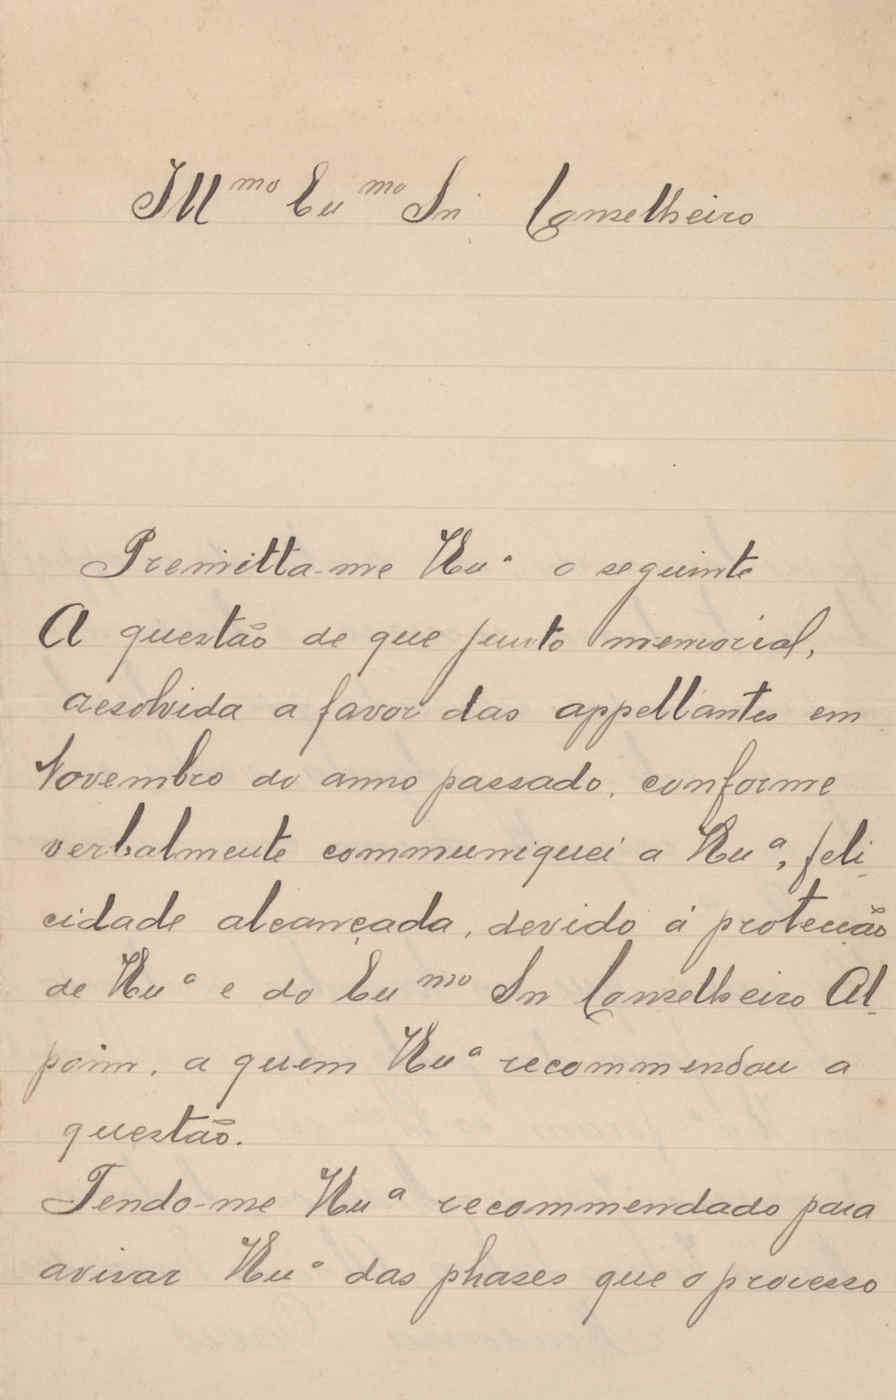 Ill<sup>mo</sup> Ex<sup>mo</sup> Sr. Conselheiro
Premitta-me V Ex<sup>a</sup> o seguinte
A questão de que junto memorial,
resolvida a favor das appellantes em
Novembro do anno passado, conforme
verbalmente communiquei a V Ex<sup>a</sup>, feli-
cidade alcançada, devido á protecção
de V Ex<sup>a</sup> e do Ex<sup>mo</sup> Sr Conselheiro Al-
poim, a quem V Ex<sup>a</sup> recommendou a
questão.
Tendo-me V Ex<sup>a</sup> recommendado para
avisar V Ex<sup>a</sup> das phases que o processo